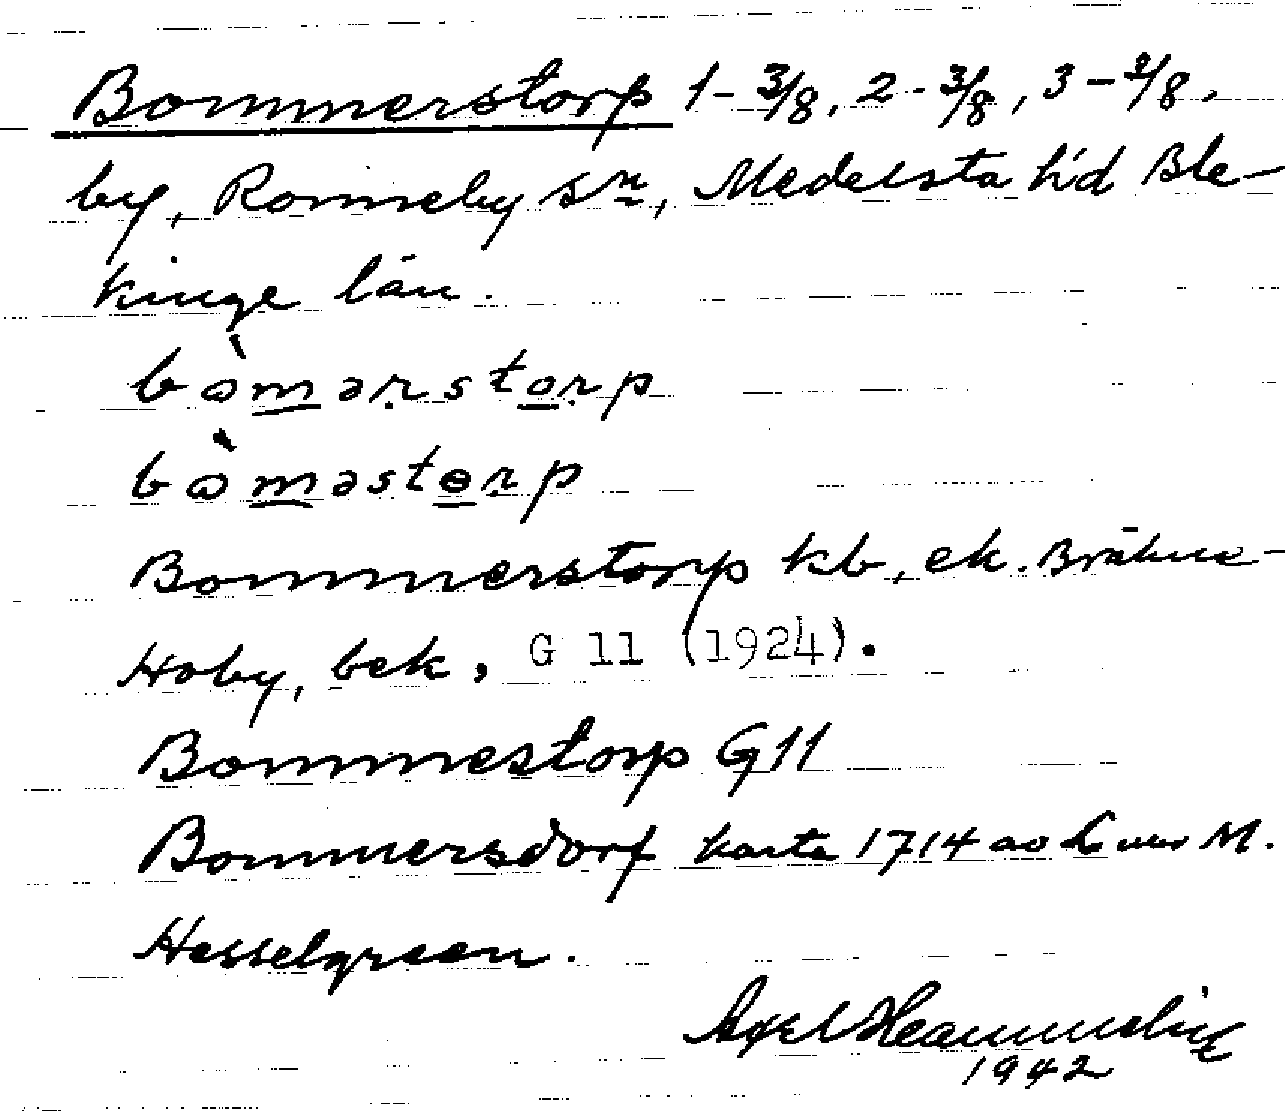 Bommerstorp 1-3/8, 2-3/8, 3-2/8,
by, Ronneby sn, Medelsta h'd Ble-
kinge län.
bɷ̀mərstorp
bɷ̀məstɵrp
Bommerstorp kb, ek. Bräkne-
Hoby, bek, G 11 (1924).
Bommestorp G11
Bommersdorf karta 1714 av M.
Hesselgreen.
Axel Hammelin
1942